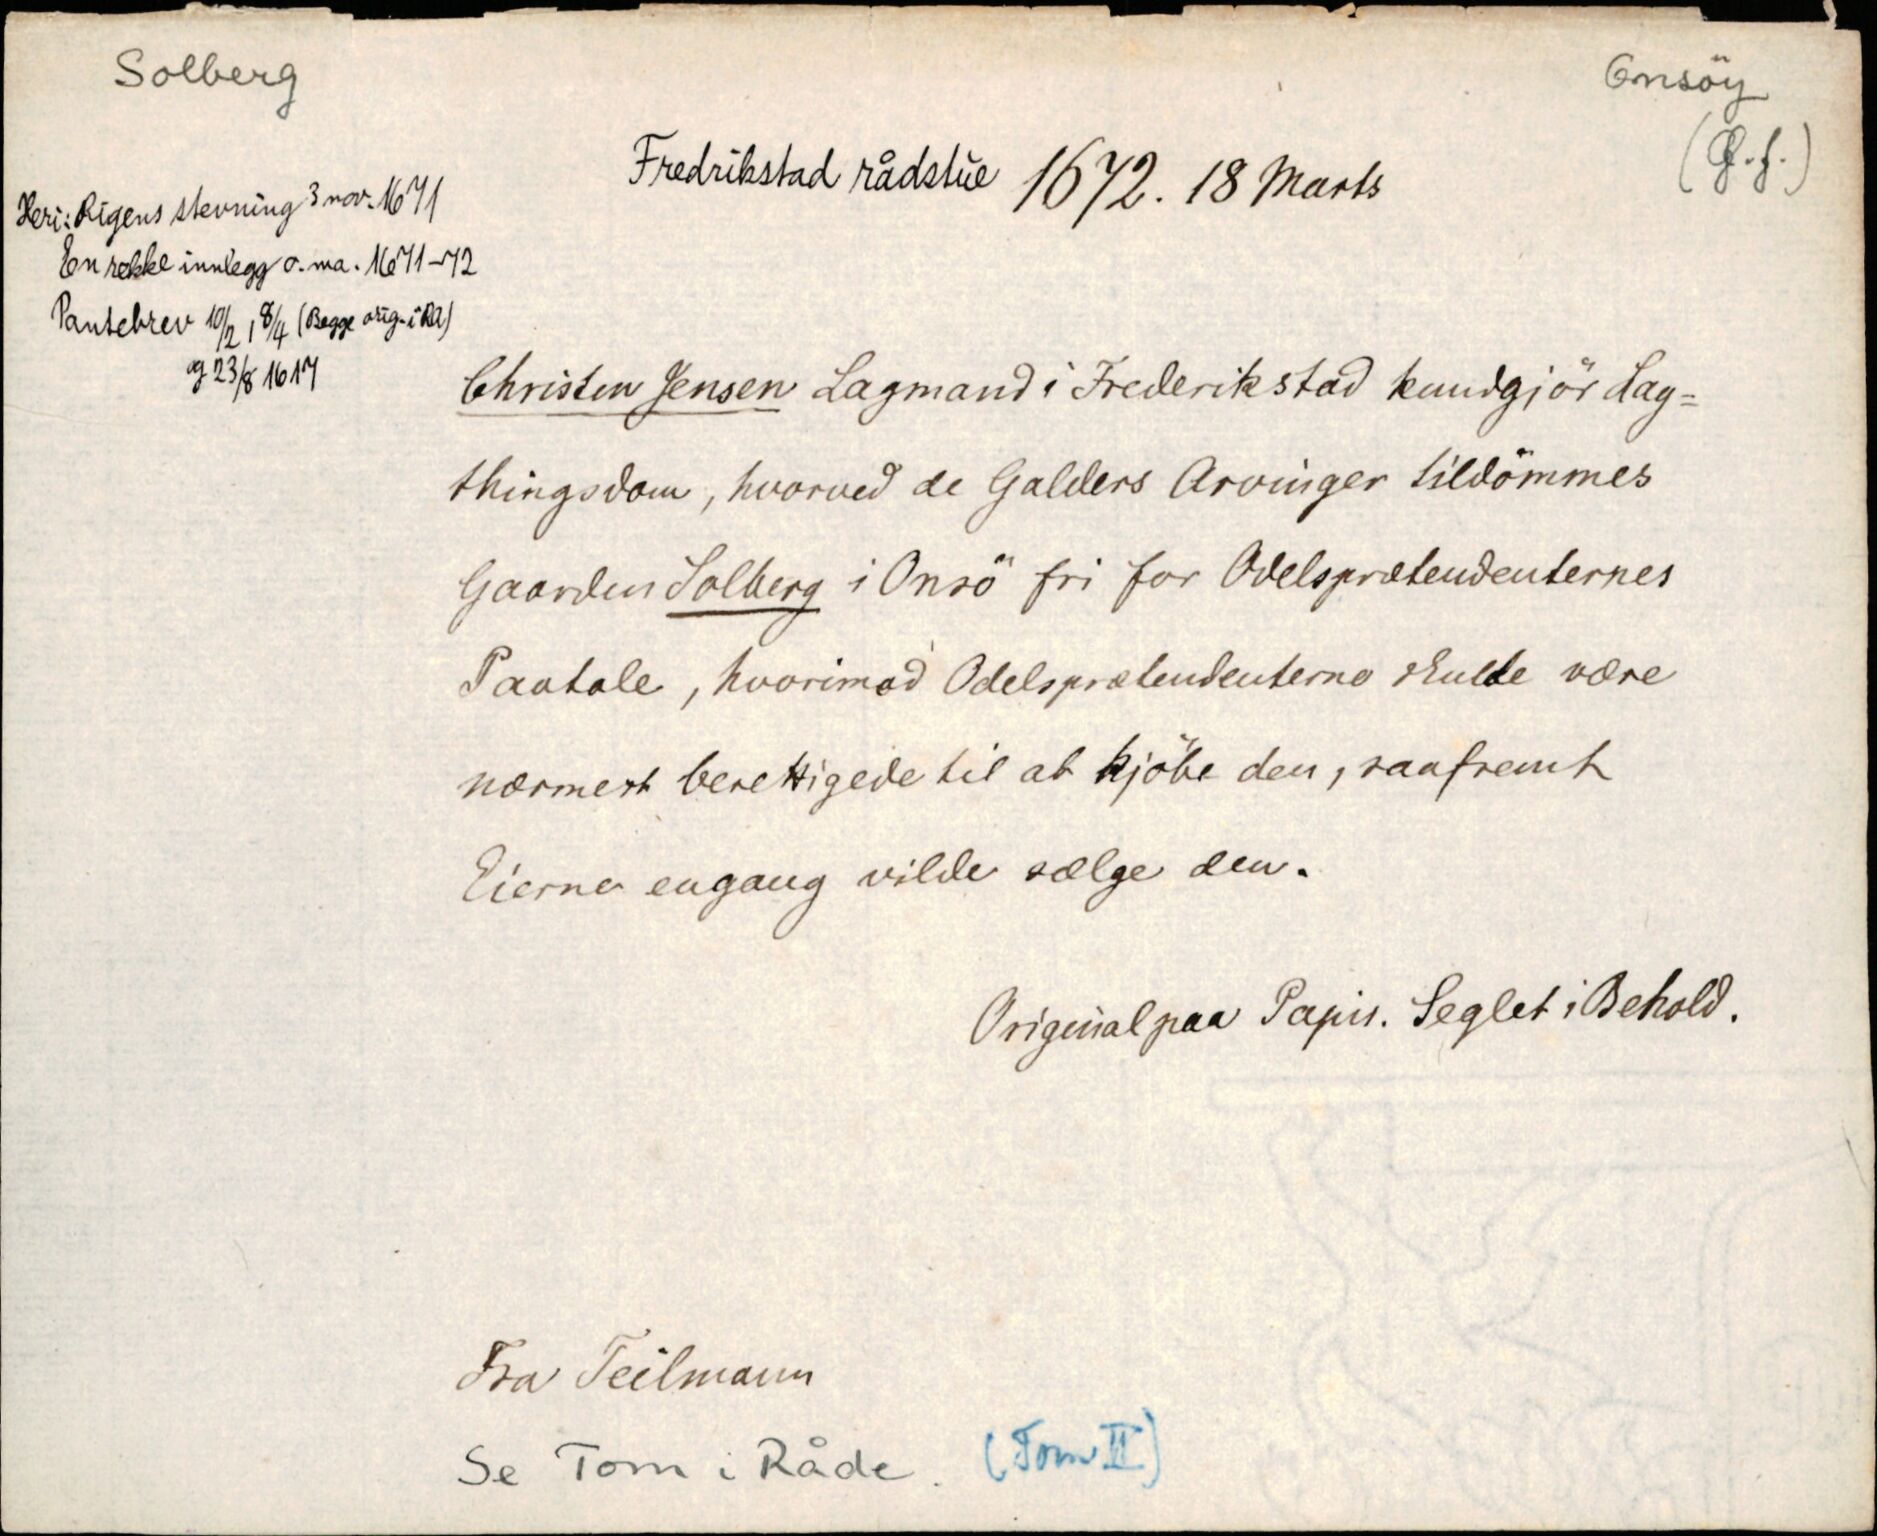 Solberg
Onsöy
(G.f.)
Fredrikstad rådstue 1672. 18 Marts
Heri: Rigens stevning 3 nov. 1671
En rekke innlegg o. m a. 1671-72
Pantebrev 10/2, 8/4 (Begge orig. i RA)
og 23/8 1617
Christen Jensen Lagmand i Frederikstad kundgjör Lag=
thingsdom, hvorved de Galders Arvinger tildömmes
Gaarden Solberg i Onsö fri for Odelsprætendenternes
Paatale, hvorimod Odelsprætendenterne skulde være
nærmest berettigede til at kjöbe den, saafremt
Eierne engang vilde sælge den.
Original paa Papir. Seglet i Behold.
Fra Teilmann
Se Tom i Råde. (Tom II)